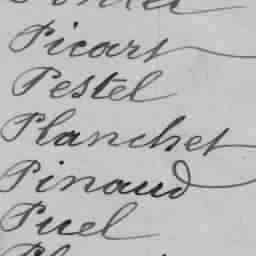 Picart
Pestel
Planchet
Pinaud
Puel